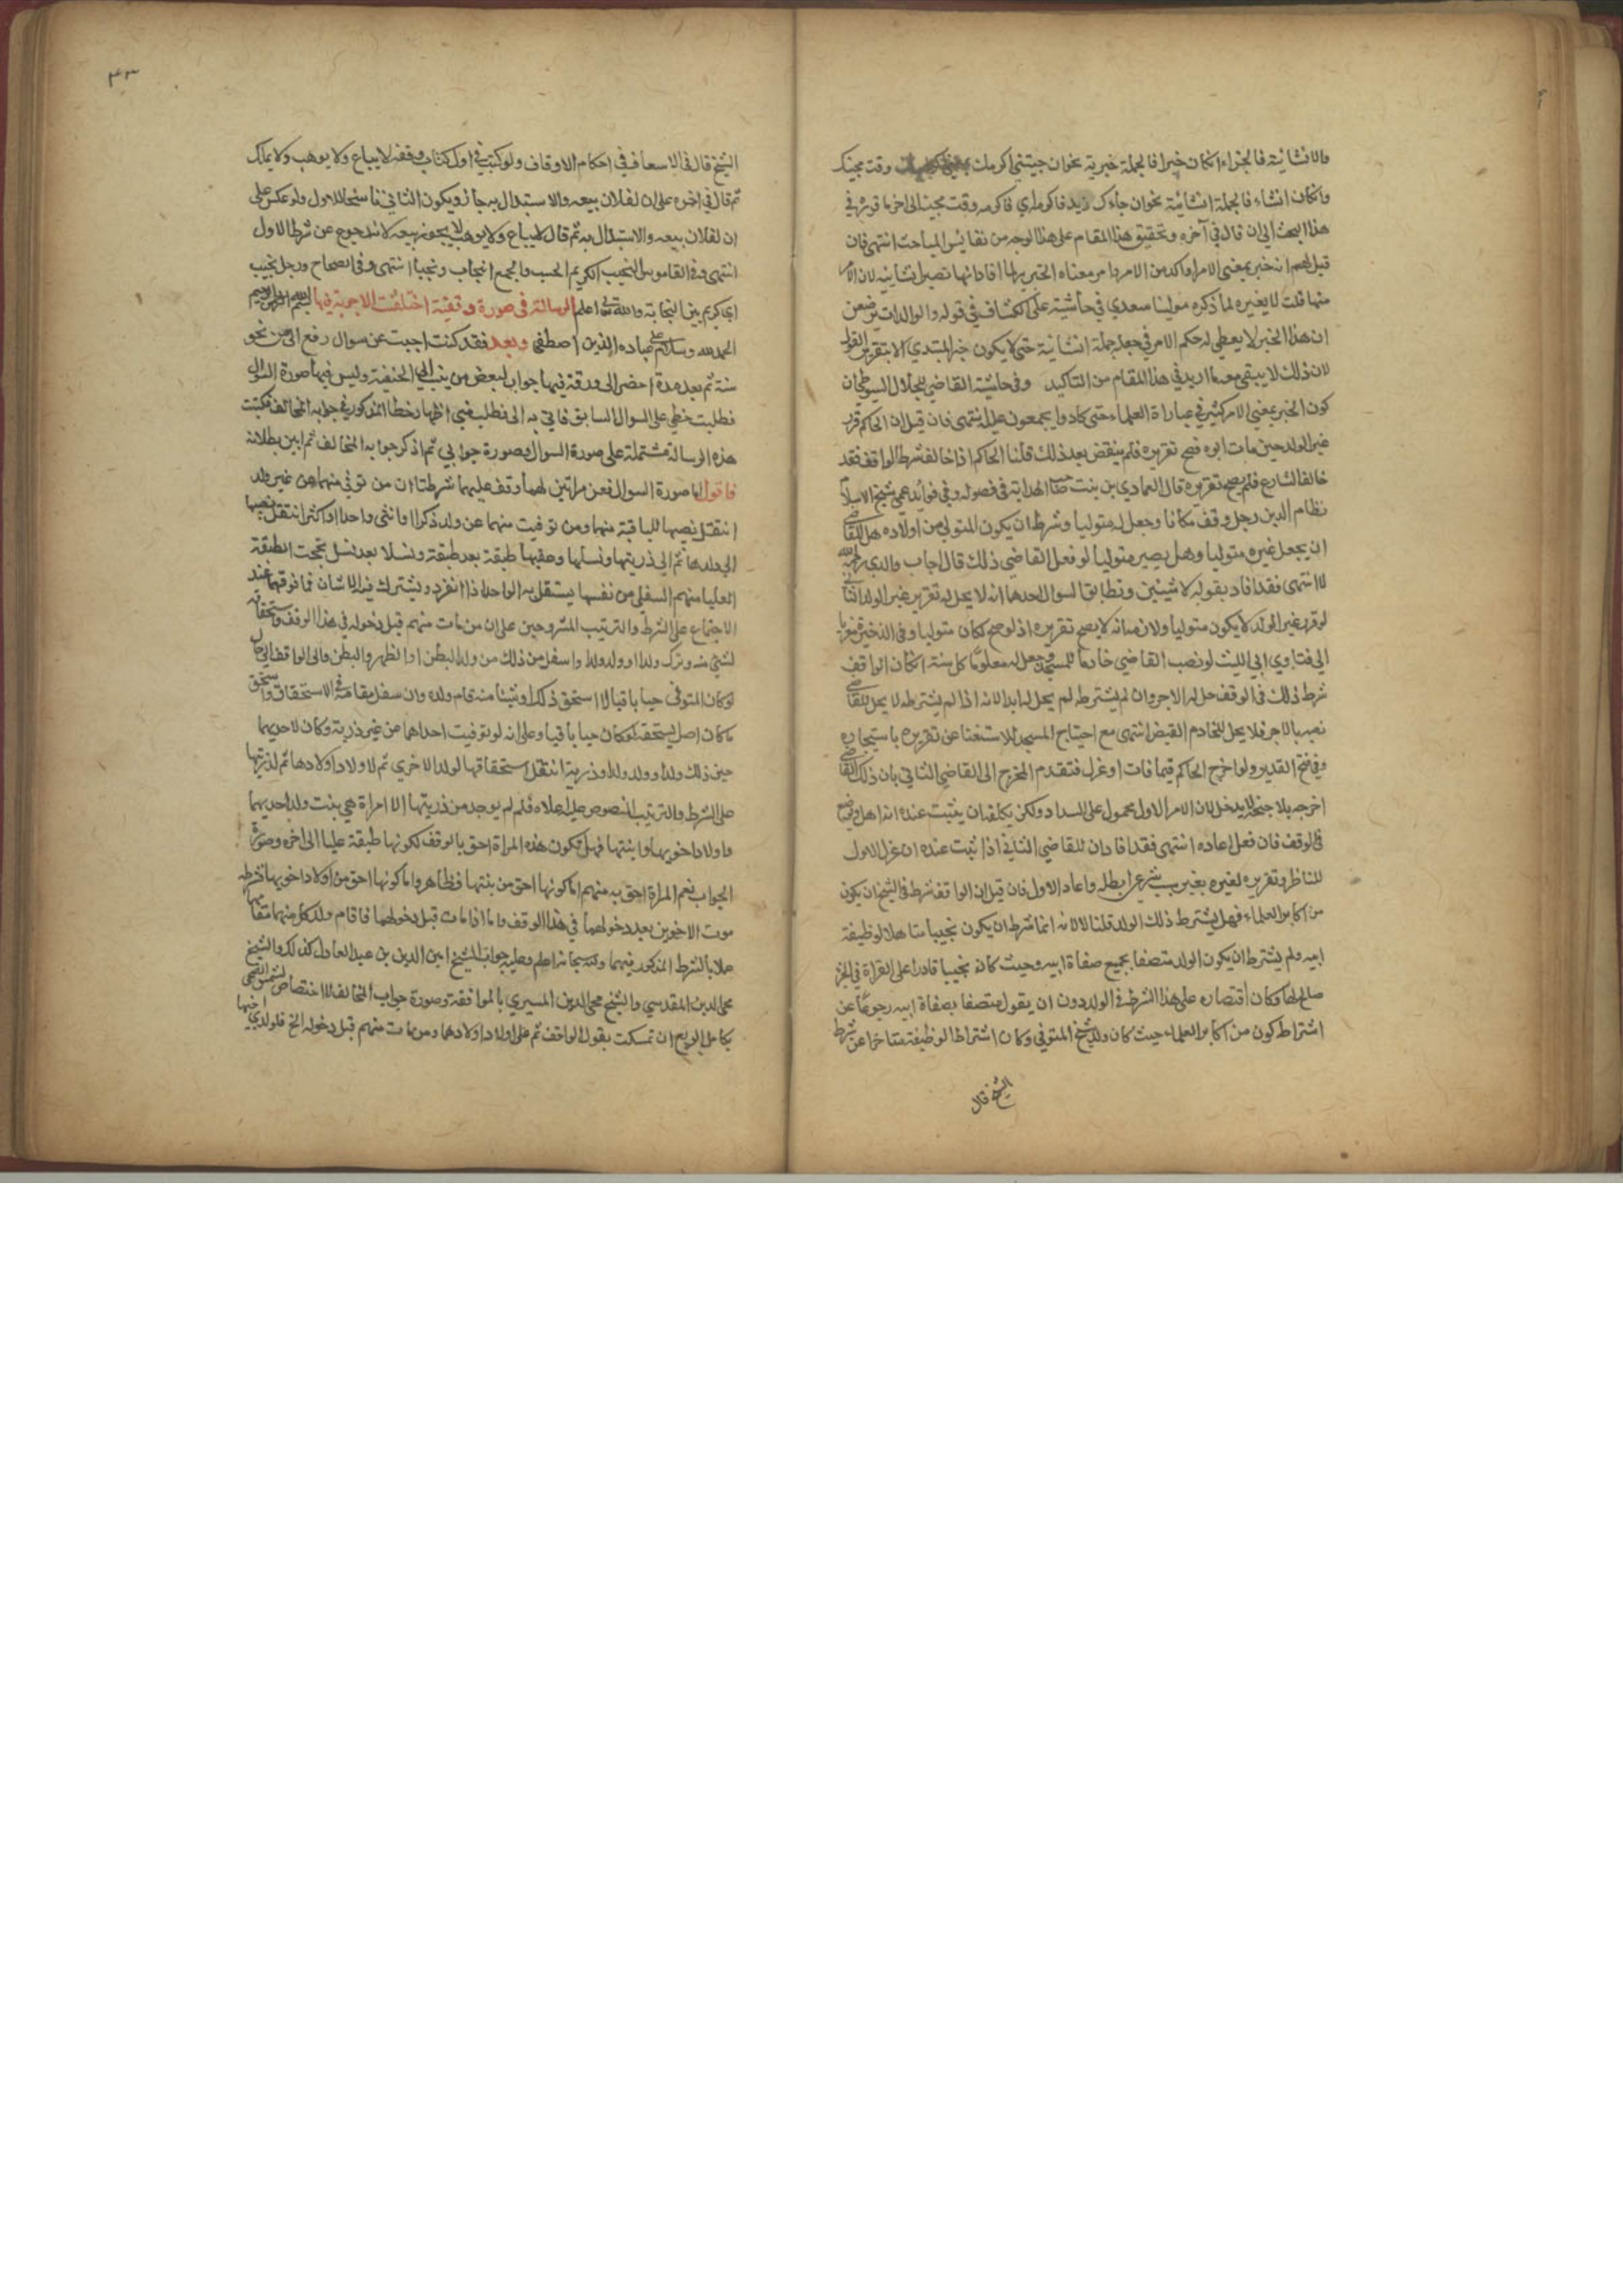 والانشائية فالجزاء ان كان خبرا فالجملة خبرية نحو ان جيتني اكرمك وقت مجيئك
وان كان انشاء فالجملة انشائية نحو ان جاءك زيد فاكرمه اي فاكرمه وقت مجيئه الى اخر ما قرره في
هذا البحث الى ان قال في آخره وتحقيق هذا المقام على هذا الوجه من نفائس المباحث انتهى فان
قيل انه خبر بمعنى الامر واكد من الامر معناه الخبر افاد انها تصير انشائية لان الامر
منها قلت لا يغيره لما ذكره مولينا سعدي في حاشيته على الكشاف في قوله والوالدات يرضعن
ان هذا الخبر لا يعطى له حكم الامر في جعله جملة انشائية حتى لا يكون خبر المبتدي الا بتقرير القول
لان ذلك لا يبقى معه ما اريد في هذا المقام من التاكيد وفي حاشية القاضي للجلال السيوطي ان
كون الخبر بمعنى الامر كثير في عبارة العلماء حتى كادوا يجمعون عليه انتهى فان قيل ان الحاكم قرر
غير الولد حين مات ابوه فصح تقريره فلم ينقض بعد ذلك قلنا الحاكم اذا خالف شرط الواقف فقد
خالف الشارع فلم يصح تقريره قال العمادي بن بنت صاحب الهداية في فصوله وفي فوائد عمي شيخ الاسلام
نظام الدين رجل وقف مكانا وجعل له متوليا وشرط ان يكون المتولي من اولاده هل للقاضي
ان يجعل غيره متوليا وهل يصير متوليا لو فعل القاضي ذلك قال اجاب والدي رحمه الله
لا انتهى فقد افاد بقوله لا شيئين وتطابق السوال احدها انه لا يحل له تقرير غير الولد الثاني
لو قرر غير الولد لا يكون متوليا ولازمه انه لا يصح تقريره اذ لو صح لكان متوليا وفي الذخيرة معزيا
الى فتاوي ابي الليث لو نصب القاضي خادما للمسجد وجعل له معلوما كل سنة ان كان الواقف
شرط ذلك في الوقف حل له الاجر وان لم يشترطه لم يحل له ابدا لانه اذا لم يشترطه لا يحل للقاضي
نصبه بالاجر فلا يحل للخادم القبض انتهى مع احتياج المسجد للاستغنا عن تقريره باستيجاره
وفي فتح القدير ولو اخرج الحاكم قيما فات او عزل فتقدم المخرج الى القاضي الثاني بان ذلك القاضي
اخرجه بلا جنحة لا يدخله لان الامر الاول محمول على السداد ولكن يكلفه ان يثبت عنده انه اهل وموضع
في الوقف فان فعل اعاده انتهى فقد افاد ان للقاضي الثاني اذا ثبت عنده ان عزل الاول
للناظر وتقريره لغيره بغير سبب شرعي ابطله واعاد الاول فان قيل ان الواقف شرط في الشيخ ان يكون
من اكابر العلماء فهل يشترط ذلك الولد قلنا لا لانه انما شرط ان يكون نجيبا متاهلا لوظيفة
ابيه ولم يشترط ان يكون الولد متصفا بجميع صفاة ابيه وحيث كان نجيبا قادرا على القراة في الجز
صلح لها وكان اقتصاره على هذا الشرط في الولد دون ان يقول متصفا بصفاة ابيه رجوعا عن
اشتراط كون من اكابر العلماء حيث كان ولد الشيخ المتوفي وكان اشتراطا لوظيفة متاخرا عن شرط
الشيخ قال
٤٣
الشيخ قال في الاسعاف في احكام الاوقاف ولو كتب في اول كتاب وقفه لا يباع ولا يوهب ولا يملك
ثم قال في اخره على ان لفلان بيعه والاستبدال به جاز ويكون الثاني ناسخا للاول ولو عكس على
ان لفلان بيعه والاستبدال به ثم قال لا يباع ولا يوهب لا يجوز بيعه لانه رجوع عن شرط الاول
انتهى وفي القاموس النجيب الكريم الحسب والجمع انجاب ونجبا انتهى وفي الصحاح ورجل نجيب
اي كريم بين النجابة والله تعالى اعلم الرسالة في صورة وقفية اختلفت الاجوبة فيها بسم الله الرحمن الرحيم
الحمد لله وسلام على عباده الذين اصطفى وبعد فقد كنت اجبت عن سوال رفع الي من نحو
سنة ثم بعد مدة احضر الي ورقة فيها جواب لبعض من ينسب الى الحنفية وليس فيها صورة السوال
فطلبت خطي على السوال السابق فاتي به الي فطلب مني اظهار خطا المذكور في جوابه المخالف فكتبت
هذه الرسالة مشتملة على صورة السوال وصورة جوابي ثم اذكر جوابه المخالف ثم ابين بطلانه
فاقول اما صورة السوال فعن مراتين لهما وقف عليهما شرطتا ان من توفي منهما عن غير ولد
انتقل نصيبها للباقية منهما ومن توفيت منهما عن ولد ذكرا او انثى واحدا او اكثر انتقل نصيبها
الى ولدها ثم الى ذريتها ونسلها وعقبها طبقة بعد طبقة ونسلا بعد نسل تحجب الطبقة
العليا منهم السفلى من نفسها يستقل به الواحد اذا انفرد ويشترك فيه الاثنان فما فوقهما عند
الاجتماع على الشرط والترتيب المشروحين على ان من مات منهم قبل دخوله في هذا الوقف واستحقاقه
لشئ منه وترك ولدا او ولد ولد او اسفل من ذلك من ولد البطن او الظهر والبطن والى الواقف الى حال
لو كان المتوفى حيا باقيا لاستحق ذلك او شيئا منه قام ولده وان سفل مقامه في الاستحقاق واستحق
ما كان اصله يستحقه لو كان حيا باقيا وعلى انه لو توفيت احداهما عن غير ذرية وكان لاحديهما
حين ذلك ولد او ولد ولد او ذرية انتقل استحقاقها لولد الاخرى ثم لاولاد اولادها ثم لذريتها
على الشرط والترتيب المنصوص عليه اعلاه فلم يوجد من ذريتها الا امراة هي بنت ولد احديهما
واولاد اخويها وابنتها فهل تكون هذه المراة احق بالوقف لكونها طبقة عليا الى اخره وصورة
الجواب نعم المراة احق به منهم اما كونها احق من بنتها فظاهر واما كونها احق من اولاد اخويها فشرطه
موت الاخوين بعد دخولهما في هذا الوقف واما اذا مات قبل دخولهما فاقام ولد كل منهما مقام ابيها
عملا بالشرط المذكور فيهما والله سبحانه اعلم وعليه جواب الشيخ امين الدين بن عبد العال وكذلك والشيخ
محب الدين المقدسي والشيخ محي الدين المسيري بالموافقة وصورة جواب المخالف لا اختصاص لشمس الضحى
بكامل الريع ان تمسكت بقول الواقف ثم على اولاد اولادها ومن مات منهم قبل دخوله الخ فلولدي اخيها